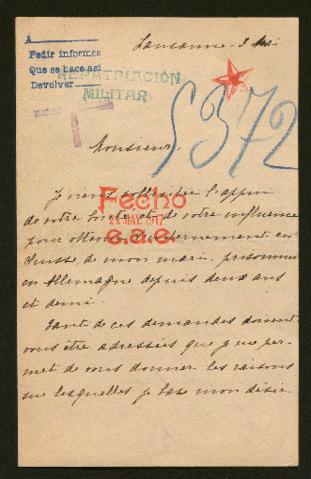 A
Pedir informes
Que se hace así
Devolver
REPATRIACIÓN
MILITAR
Lausanne - 3 Mai
5372
Monsieur,
Je viens solliciter l'appui
de votre bonté et de votre influence
pour obtenir l'internement en
Suisse, de mon mari, prisonnier
en Allemagne depuis deux ans
et demi.
Fecho
MAY. 1917
Tant de ces demandes doivent
vous être adressées que je me per-
met de vous donner les raisons
sur lesquelles je base mon désir